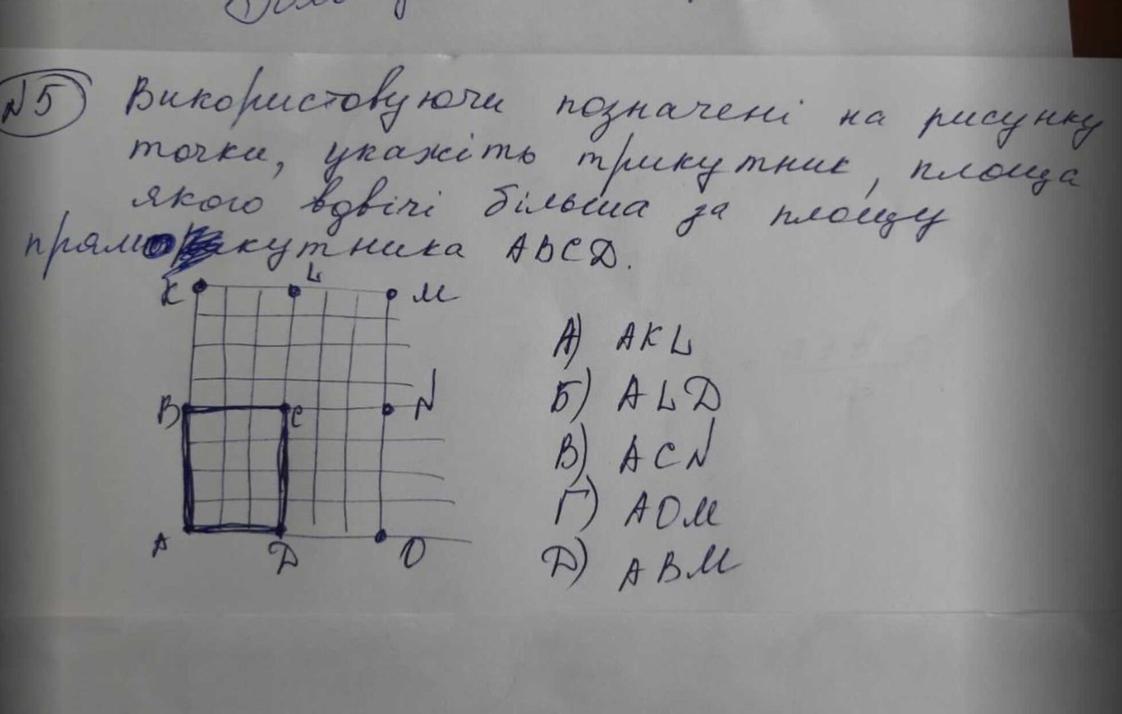 №5 Використовуючи позначені на рисунку
точки, укажіть трикутник, площа
якого вдвічі більша за площу
прямокутника ABCD.
K L M
B C N
A D O
А) AKL
Б) ALD
В) ACN
Г) AOM
Д) ABM